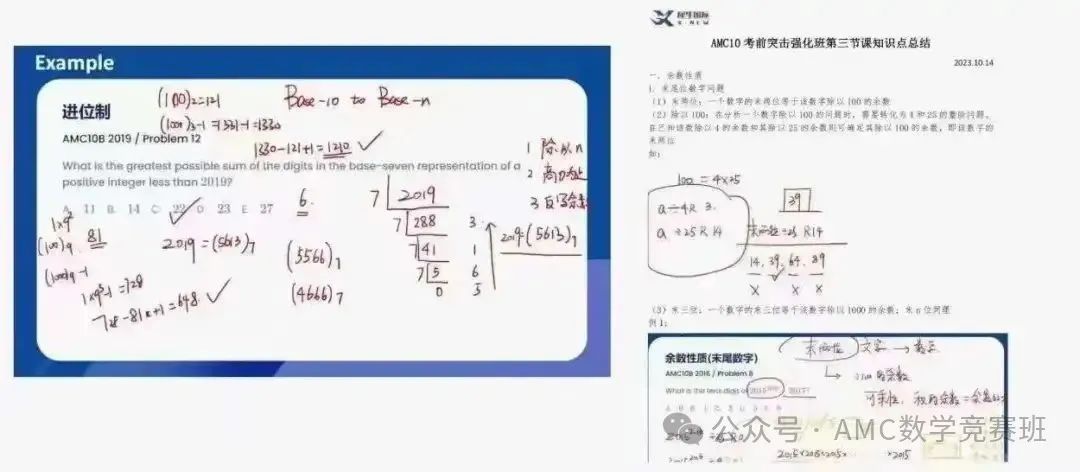 Example
进位制
(100)₂=121
Base-10 to Base-n
1330-121+1=1210
AMC10B 2019 / Problem 12
What is the greatest possible sum of the digits in the base-seven representation of a
positive integer less than 2019?
A. 11 B. 14 C. 22 D. 23 E. 27
1 除以n
2
3 反写余数
6
7 2019
7 288 3
7 41 1
7 5 6
0 5
2019=(5613)₇
(5566)₇
(4666)₇
2019 (5613)₇
(100)9
81
(1000)9-1
728-81+1=648
X-NEW
AMC10 考前突击强化班第三节课知识点总结
2023.10.14
一、余数性质
1. 末尾数字问题
（1）末两位：一个数字的末两位等于该数字除以 100 的余数
（2）除以 100：在分析一个数字除以 100 的问题时，需要转化为 4 和 25 的整除问题，
在已知该数除以 4 的余数和其除以 25 的余数则可确定其除以 100 的余数，即该数字的
末两位
如：
100 = 4×25
a÷4R 3
a÷25 R 14
39
末两位÷25 R14
14, 39, 64, 89
X X X
（3）末三位：一个数字的末三位等于该数字除以 1000 的余数；末 n 位同理
例 1：
余数性质(末尾数字)
末两位 文字 → 数学
AMC10B 2016 / Problem 8
What is the tens digit of 2015²⁰¹⁶ - 2017?
2015×2015×2015× ×2015
公众号 · AMC数学竞赛班